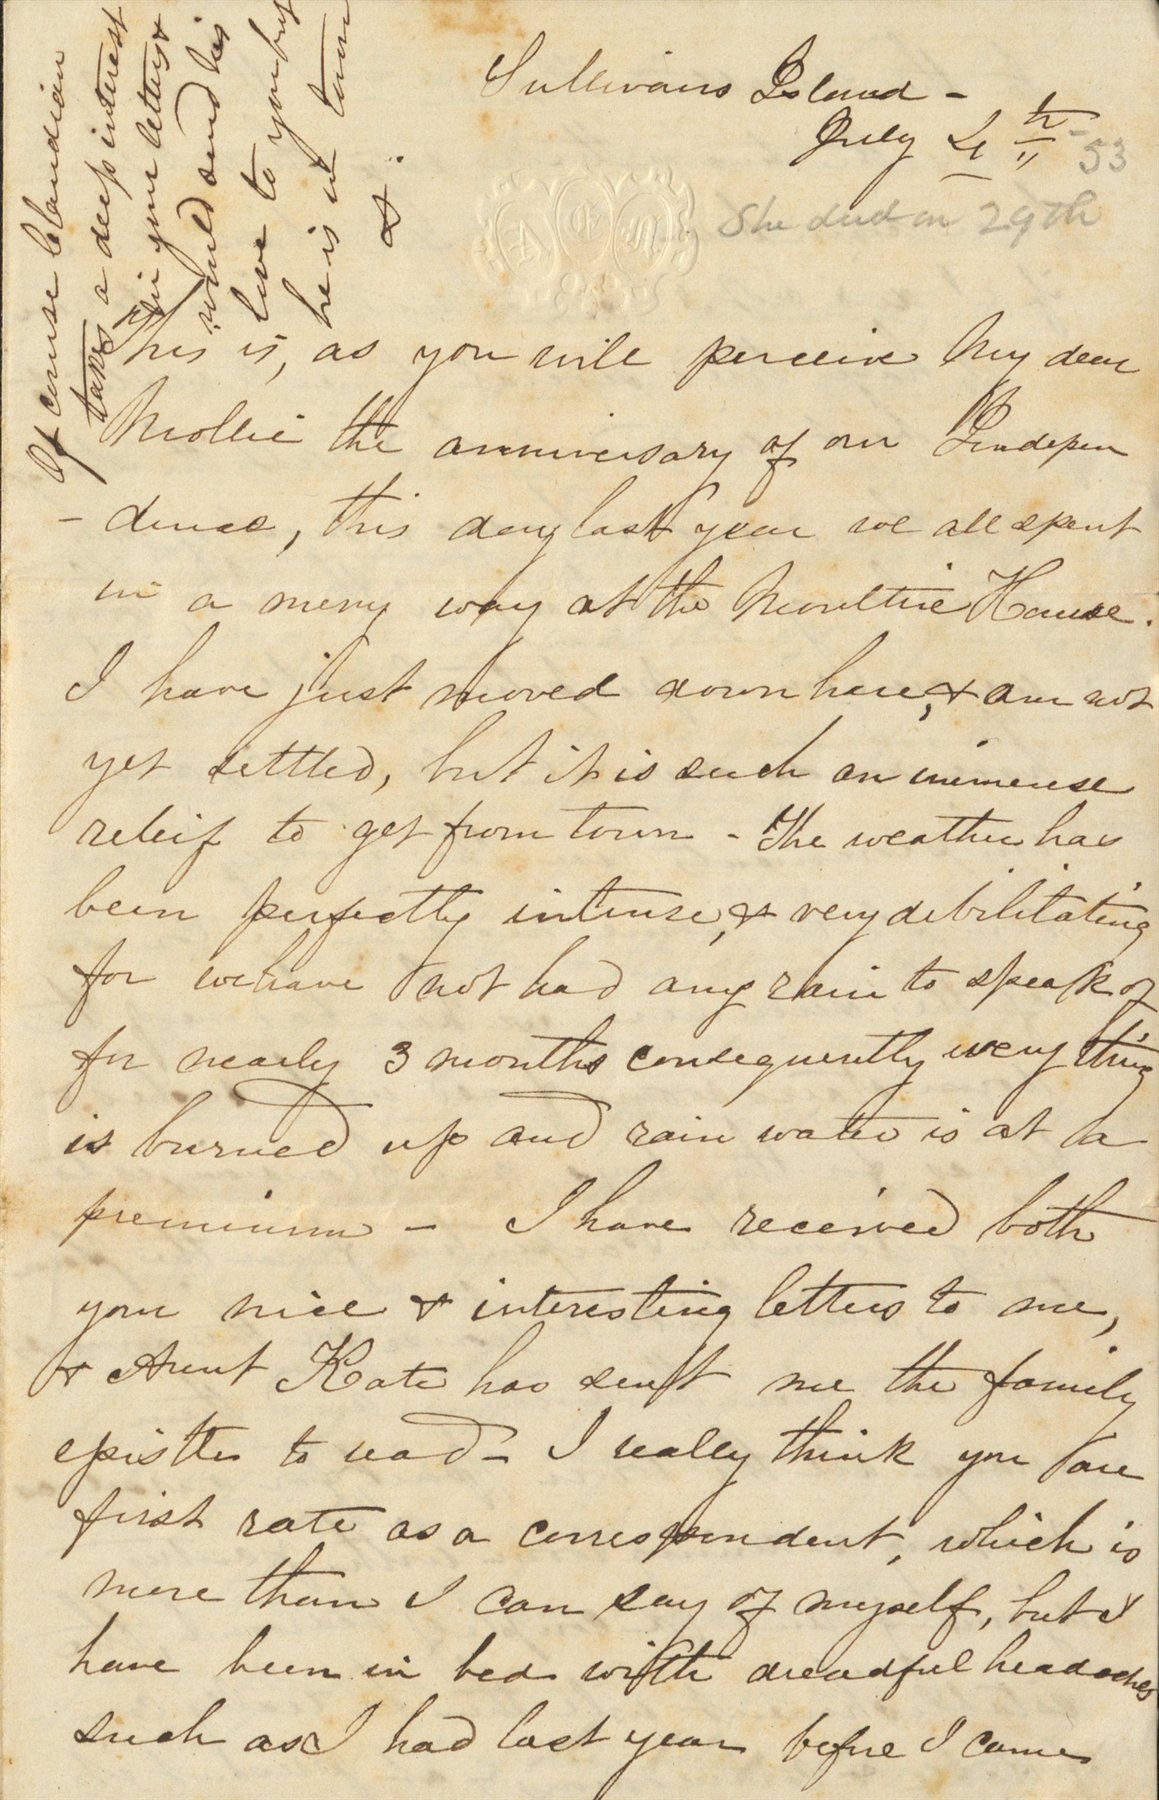 Sullivans Island -
July 4th - 53
She died on 29th
A G M
This is, as you will perceive My dear
Mollie the anniversary of our Indepen
- dence, this day last year we all spent
in a merry way at the Moultrie House.
I have just moved down here, & am not
yet settled, but it is such an immense
releif to get from town - The weather has
been perfectly intense, & very debilitating
for we have not had any rain to speak of
for nearly 3 months consequently every thing
is burned up and rain water is at a
premium - I have received both
your nice & interesting letters to me,
& Aunt Kate has sent me the family
epistles to read - I really think you are
first rate as a correspondent, which is
more than I can say of myself, but I
have been in bed with dreadful headaches
such as I had last year before I came
Of course Claudian
takes a deep interest
in your letters &
would send his
love to you but
he is in town
&.